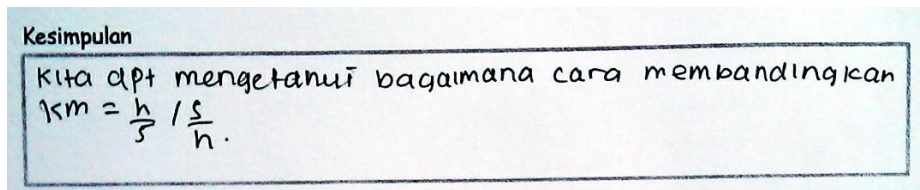 Kesimpulan
Kita dpt mengetahui bagaimana cara membandingkan
km = h/s / s/h.